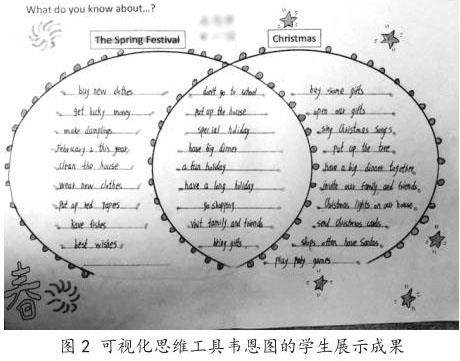 What do you know about...?
The Spring Festival
Christmas
buy new clothes
get lucky money
make dumplings
February 2 this year
clean the house
wear new clothes
put up red papers
have fishes
best wishes
don't go to school
put up the house
special holiday
have big dinner
a fun holiday
have a long holiday
go shopping
visit family and friends
bring gifts
buy some gifts
open our gifts
sing Christmas songs
put up the tree
have a big dinner together
invite our family and friends
Christmas lights on our house
send Christmas cards
shops often have Santas
play party games
春
图2 可视化思维工具韦恩图的学生展示成果